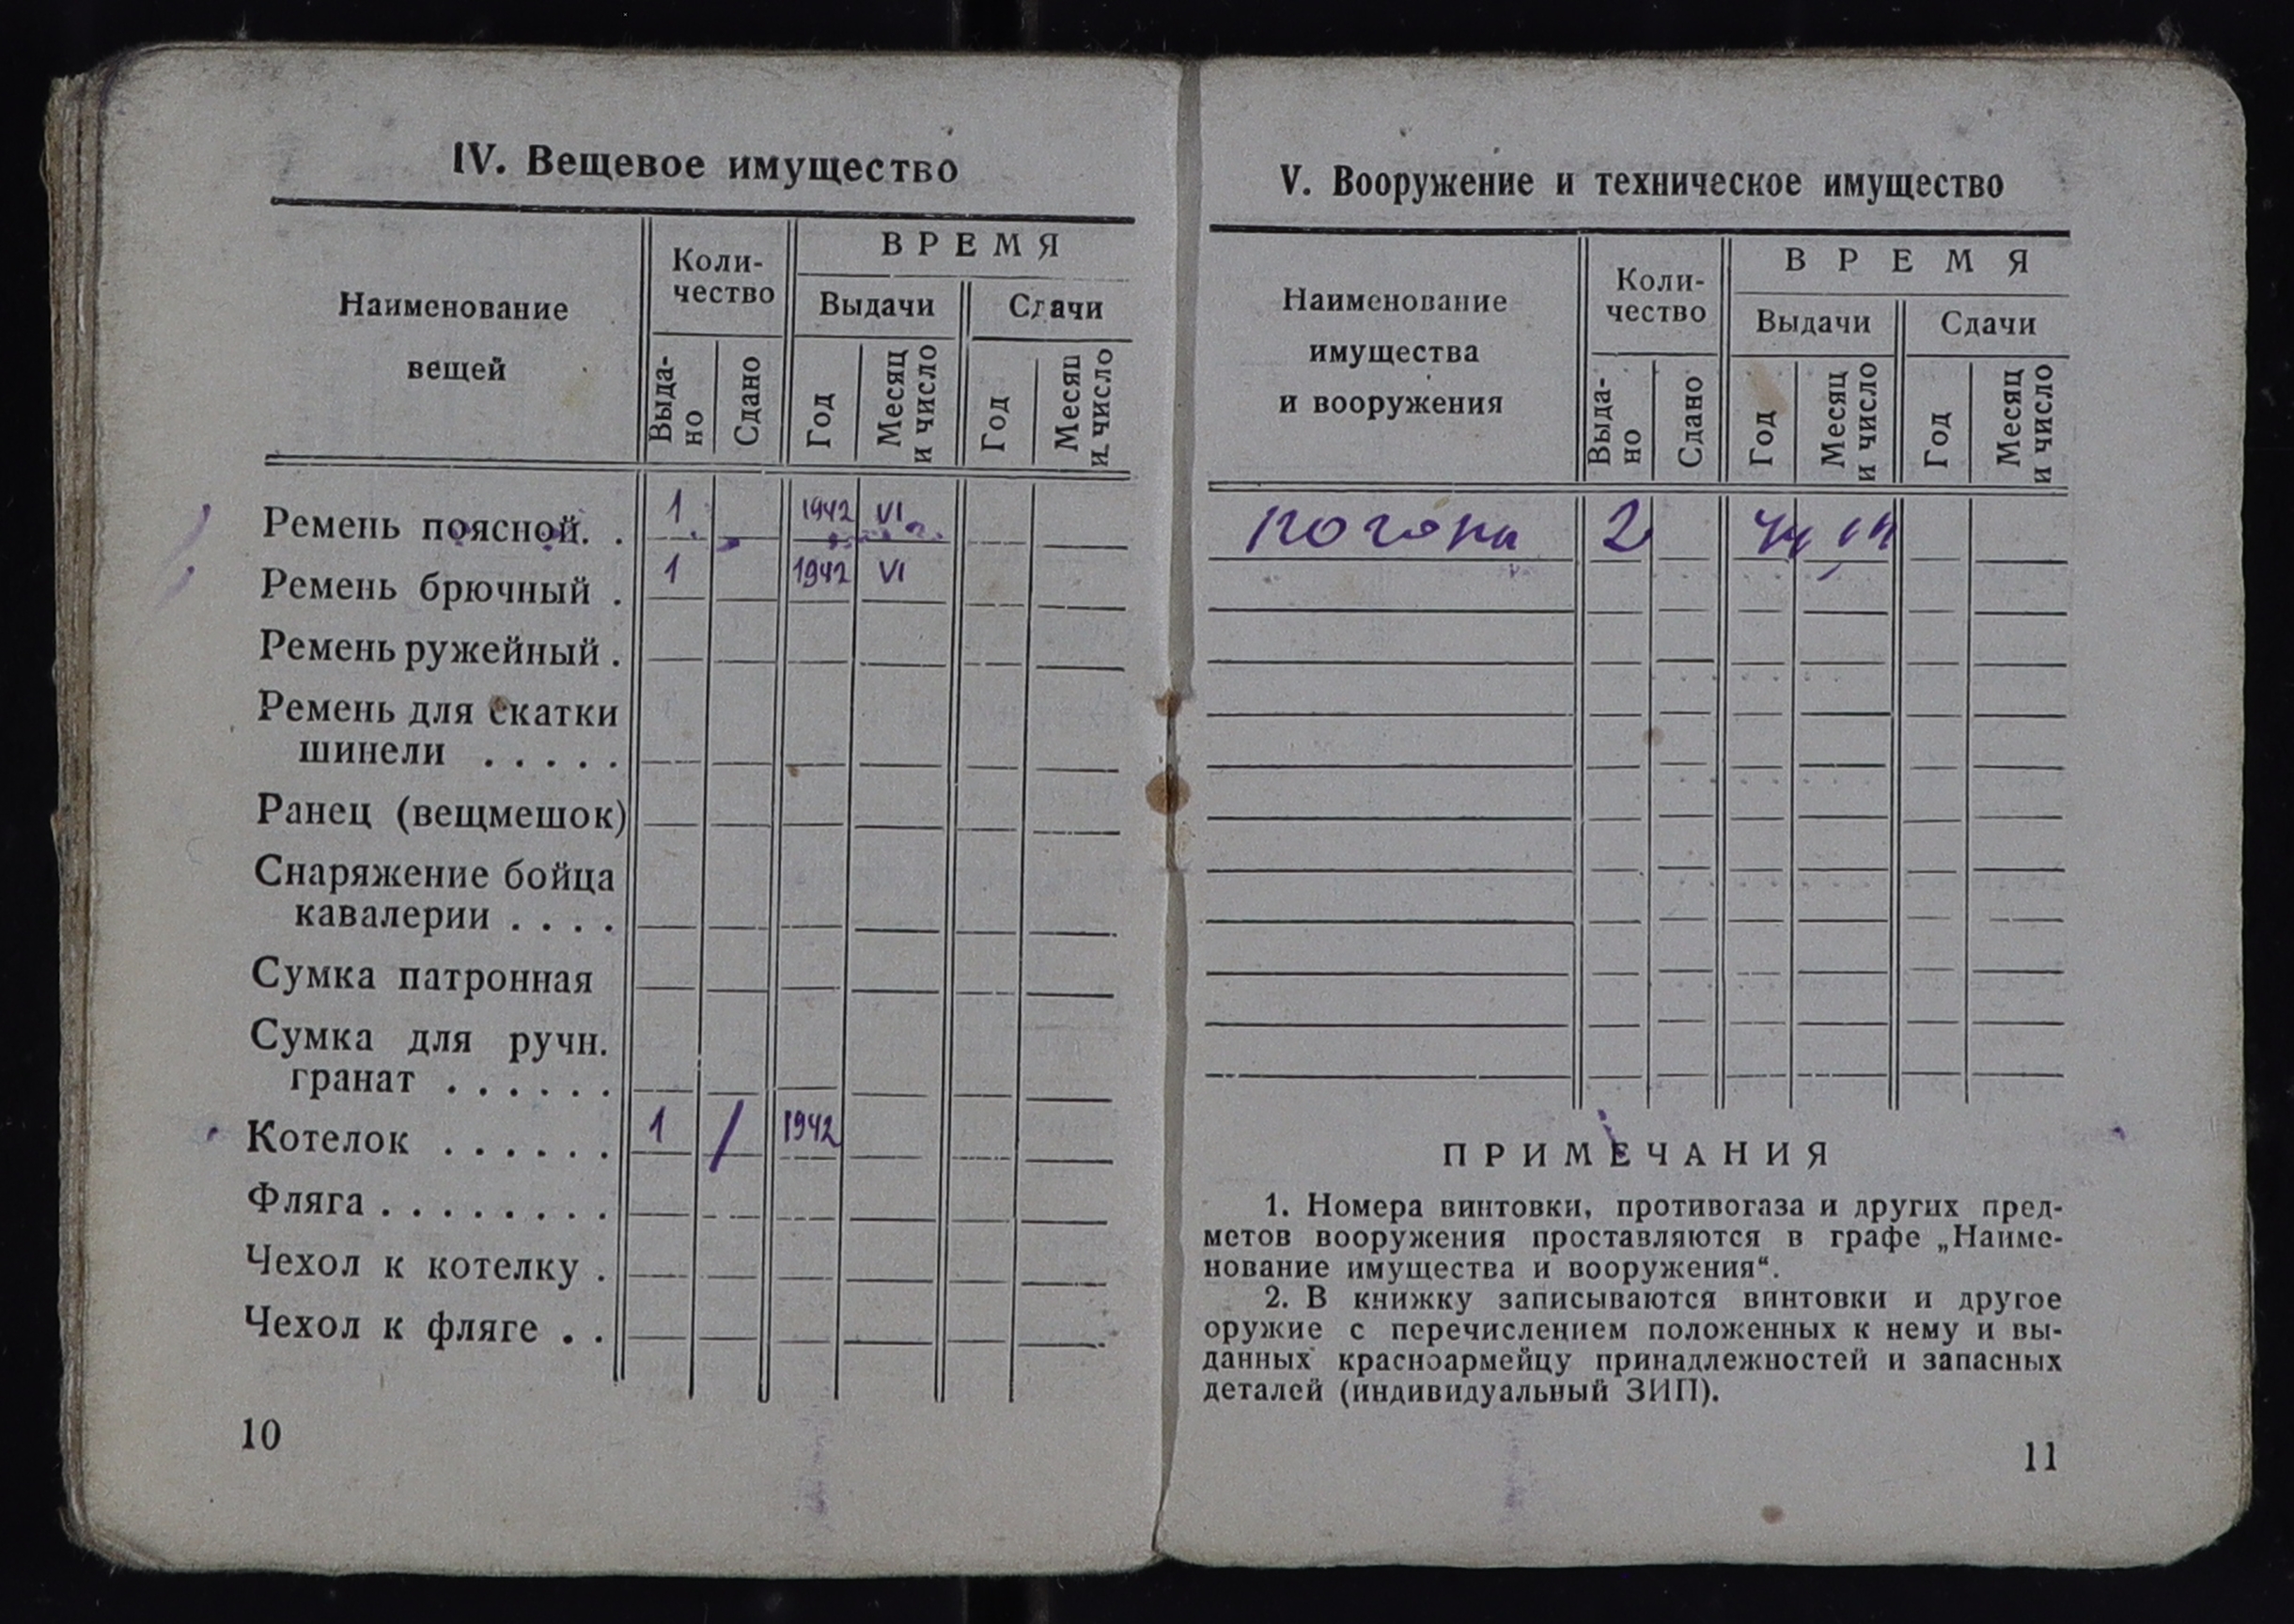 IV. Вещевое имущество
Наименование вещей
Коли-
чество
ВРЕМЯ
Выдачи
Сдачи
Выда-
но
Сдано
Год
Месяц
и число
Год
Месяц
и число
Ремень поясной. . 1 1942 VI
Ремень брючный . 1 1942 VI
Ремень ружейный .
Ремень для скатки
шинели . . . . .
Ранец (вещмешок)
Снаряжение бойца
кавалерии . . . .
Сумка патронная
Сумка для ручн.
гранат . . . . . .
Котелок . . . . . . 1 / 1942
Фляга . . . . . . . .
Чехол к котелку .
Чехол к фляге . .
10
V. Вооружение и техническое имущество
Наименование
имущества
и вооружения
Коли-
чество
ВРЕМЯ
Выдачи
Сдачи
Выда-
но
Сдано
Год
Месяц
и число
Год
Месяц
и число
погоны 2 44
ПРИМЕЧАНИЯ
1. Номера винтовки, противогаза и других пред-
метов вооружения проставляются в графе „Наиме-
нование имущества и вооружения“.
2. В книжку записываются винтовки и другое
оружие с перечислением положенных к нему и вы-
данных красноармейцу принадлежностей и запасных
деталей (индивидуальный ЗИП).
11